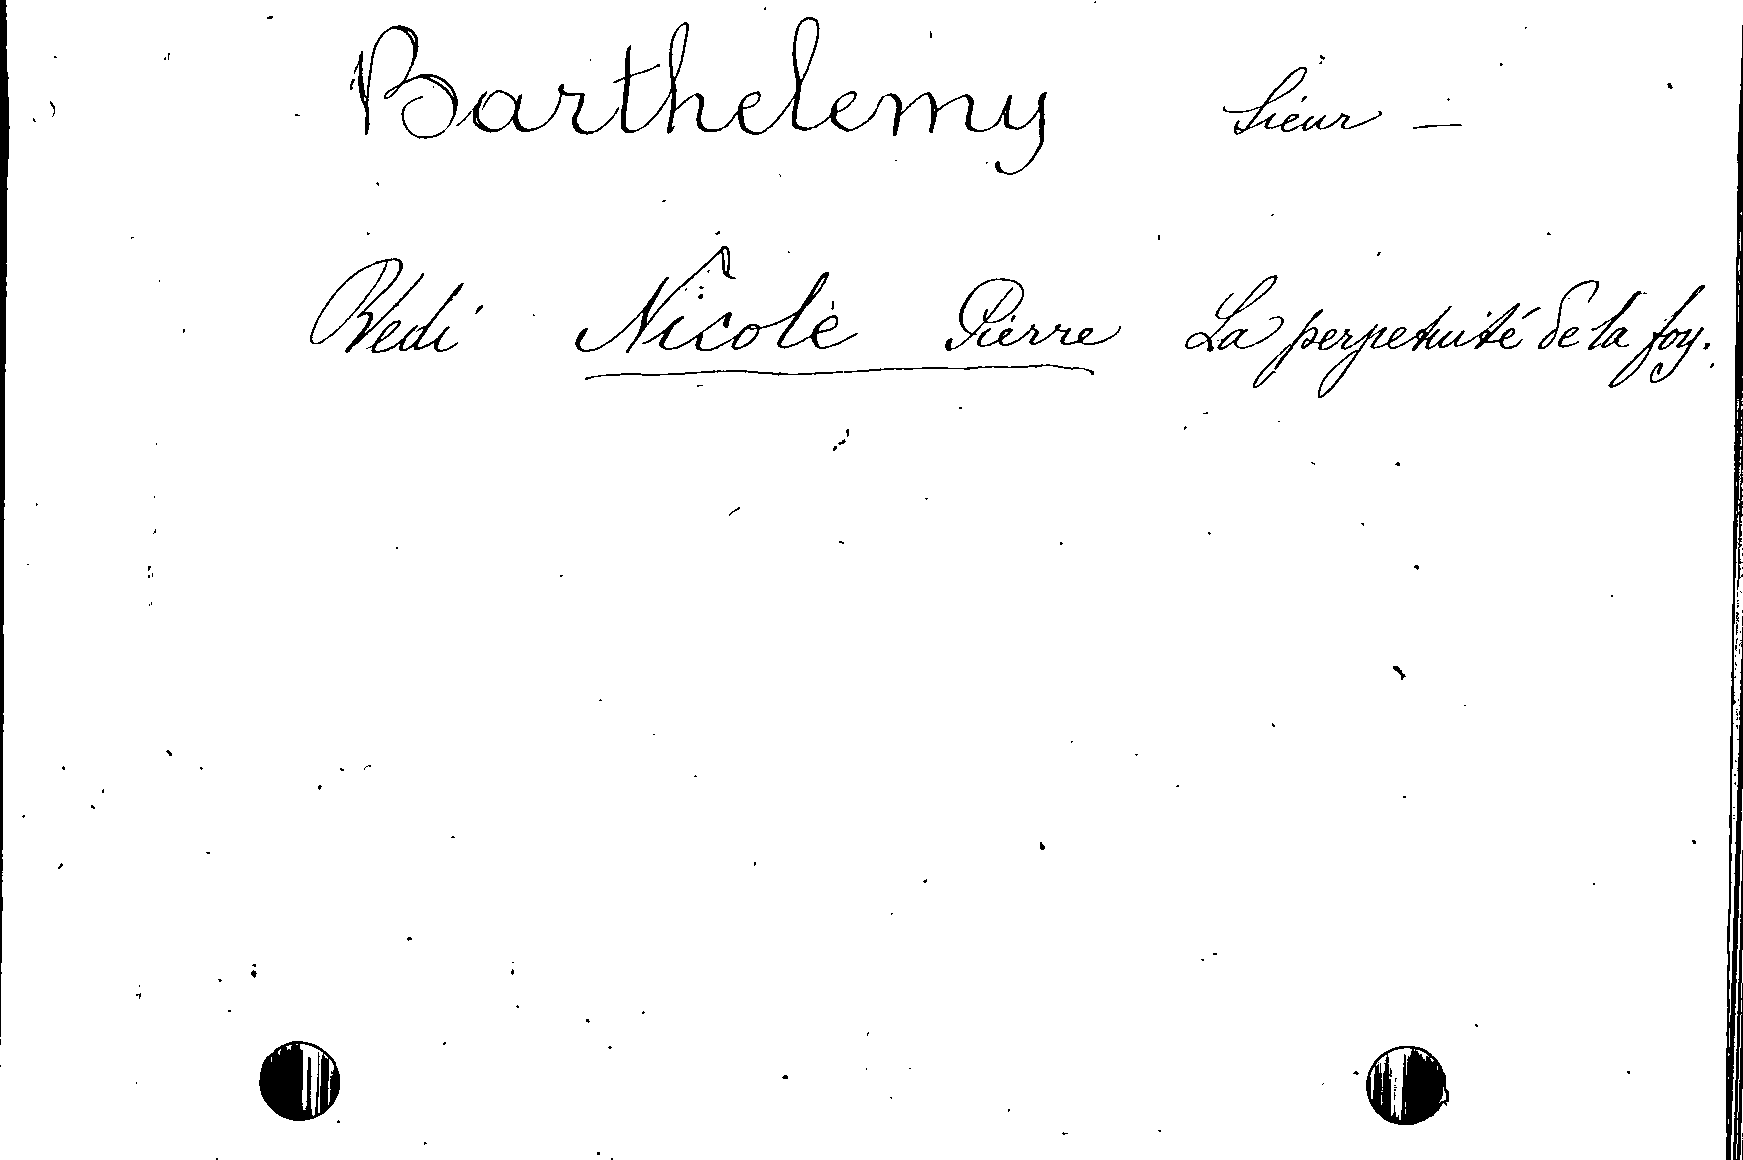 Barthelemy Sieur —
Vedi Nicole Pierre La perpetuité de la foy.